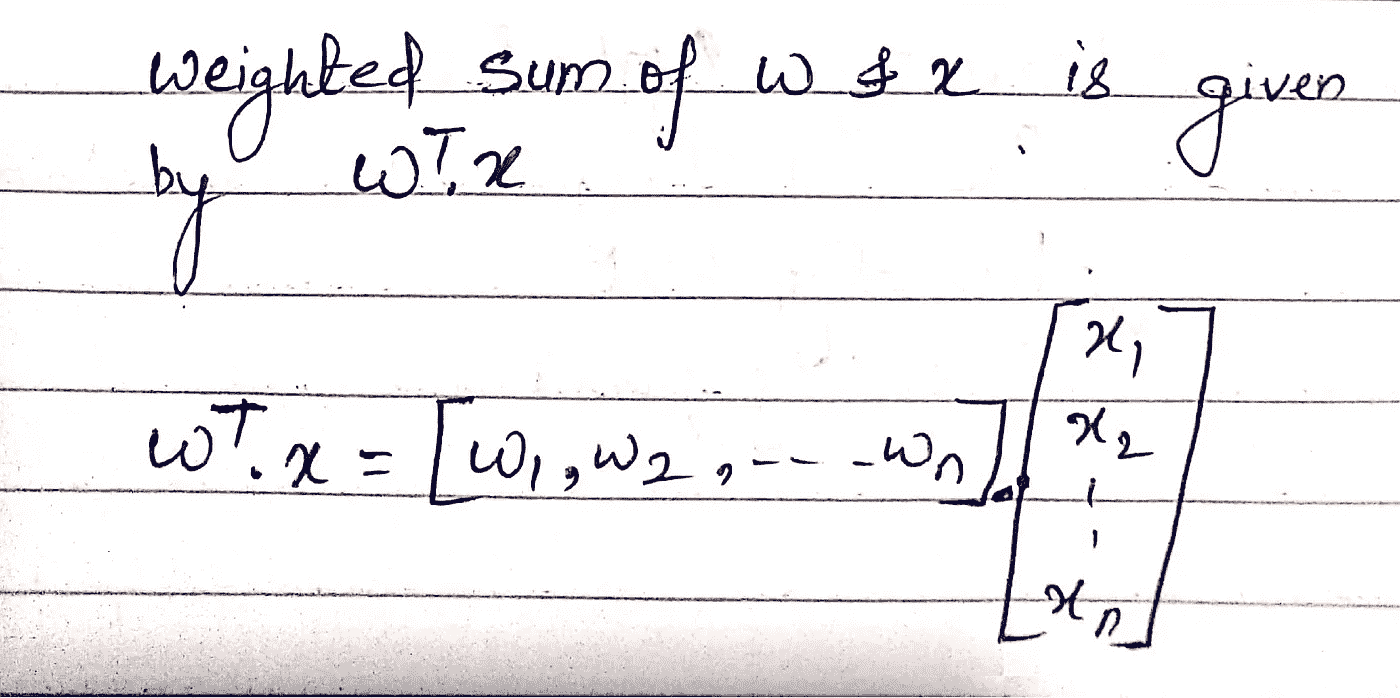 weighted sum of w & x is given
by w^T. x
w^T. x = [w₁, w₂, --- -wₙ] . [x₁
x₂
¦
xₙ]